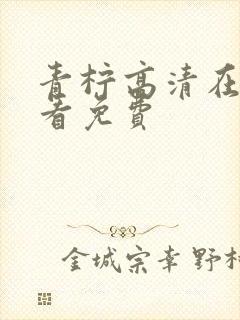 青柠高清在
看免費
金城宗幸野村